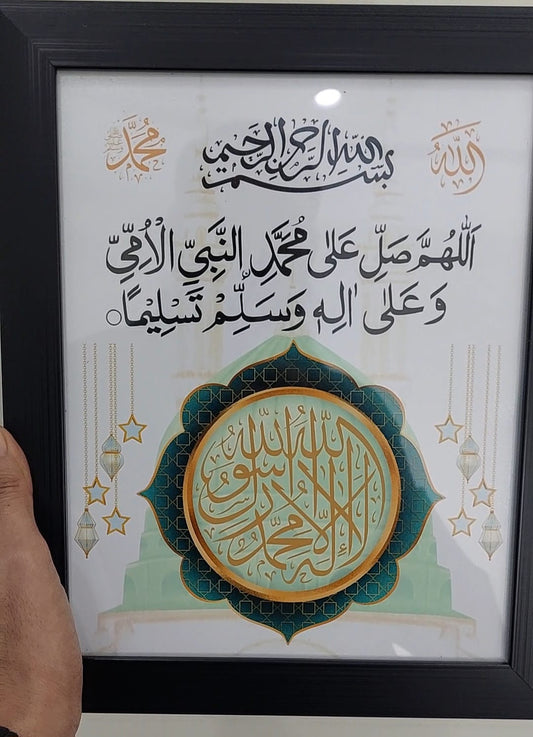 الله
بسم الله الرحمن الرحيم
محمد ﷺ
اَللّٰهُمَّ صَلِّ عَلٰى مُحَمَّدِ النَّبِيِّ الْاُمِّىِّ
وَعَلٰى اٰلِهٖ وَسَلِّمْ تَسْلِيْمًا
لا إله إلا الله محمد رسول الله